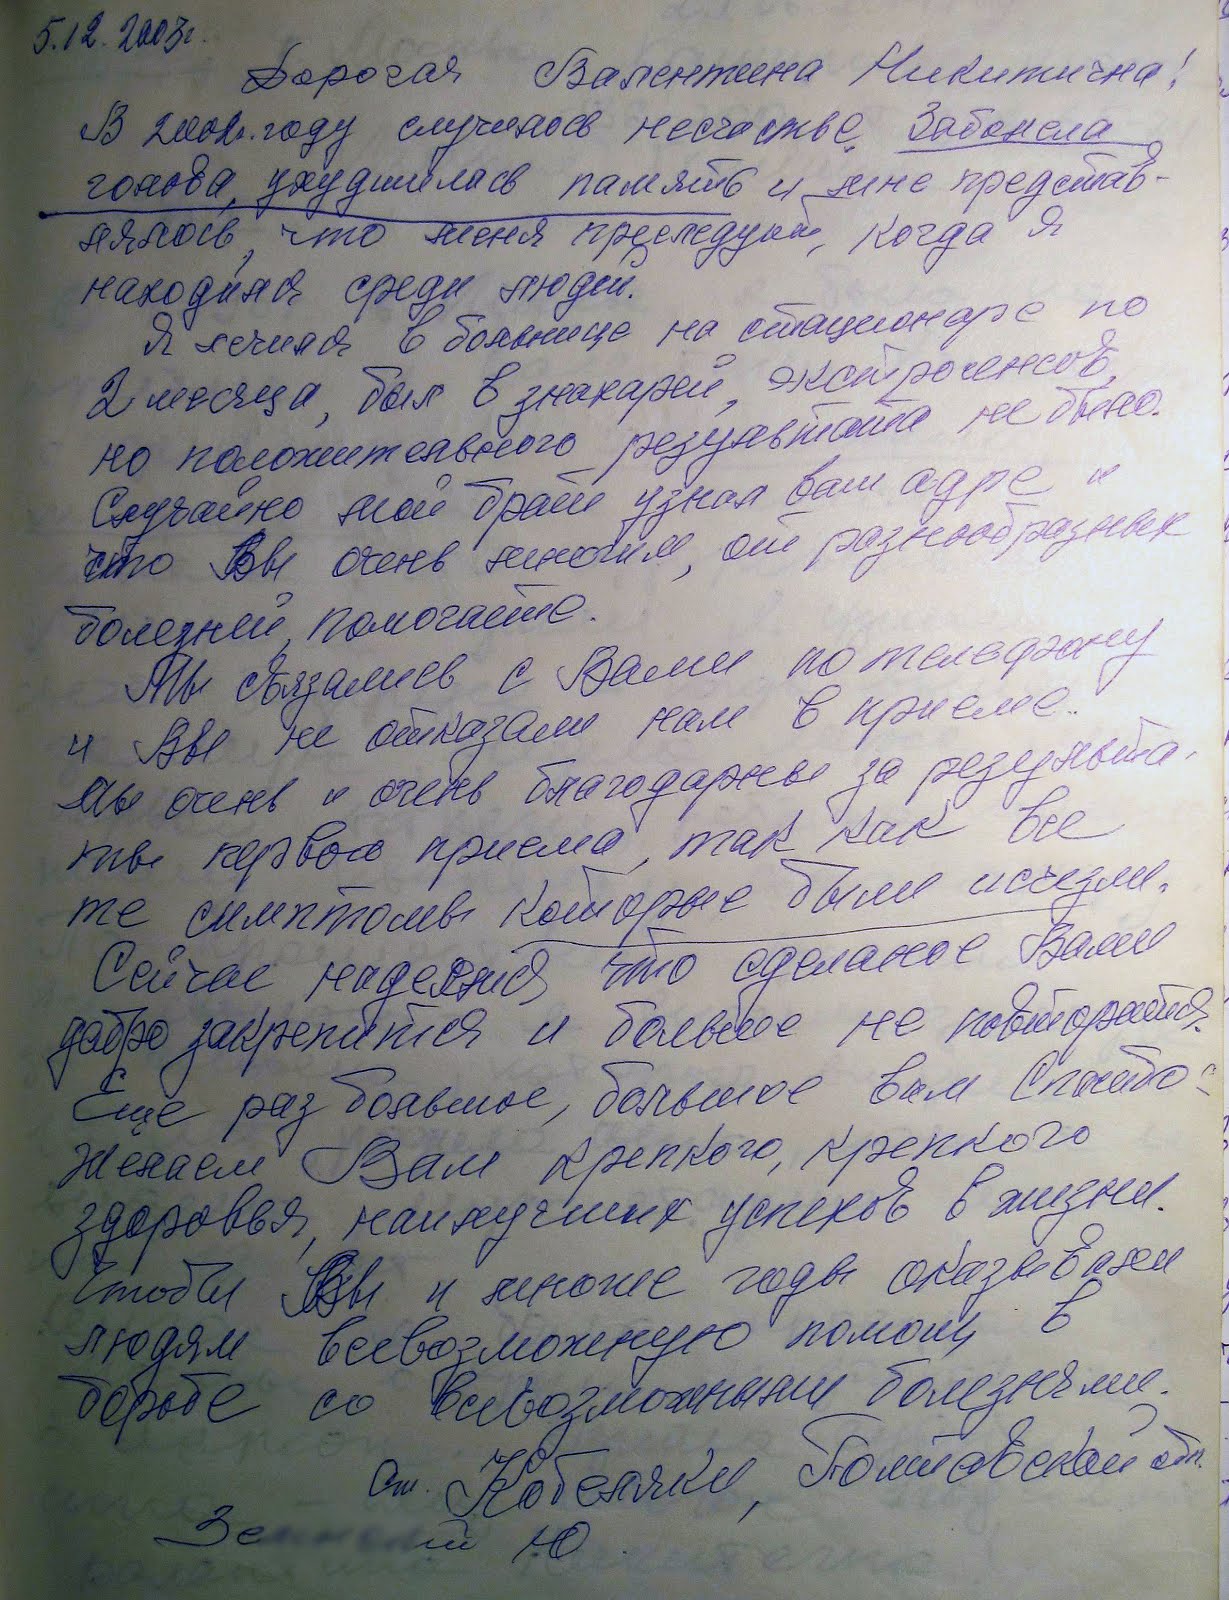 5.12.2003г.
Дорогая Валентина Никитична!
В 2002г. году случилось несчастье. Заболела
голова, ухудшилась память и мне представ-
лялось, что меня преследуют, когда я
находился среди людей.
Я лечился в больнице на стационаре по
2 месяца, был в знахарей, экстросенсов,
но положительного результата не было.
Случайно мой брат узнал вам адре и
что Вы очень многим, от разнообразных
болезней, помогаете.
Мы связались с Вами по телефону
и Вы не отказали нам в приеме.
Мы очень и очень благодарны за результа-
ты первого приема, так как все
те симптомы которые были исчезли.
Сейчас надеемся что сделаное Вами
добро закрепится и больше не повторится.
Еще раз большое, большое вам Спасибо
Желаем Вам крепкого, крепкого
здоровья, наилучших успехов в жизни.
Чтобы Вы и многие годы оказывали
людям всевозможную помощ в
борьбе со всевозможными болезнями.
От. Кобеляки, Полтавской обл.
Ю.